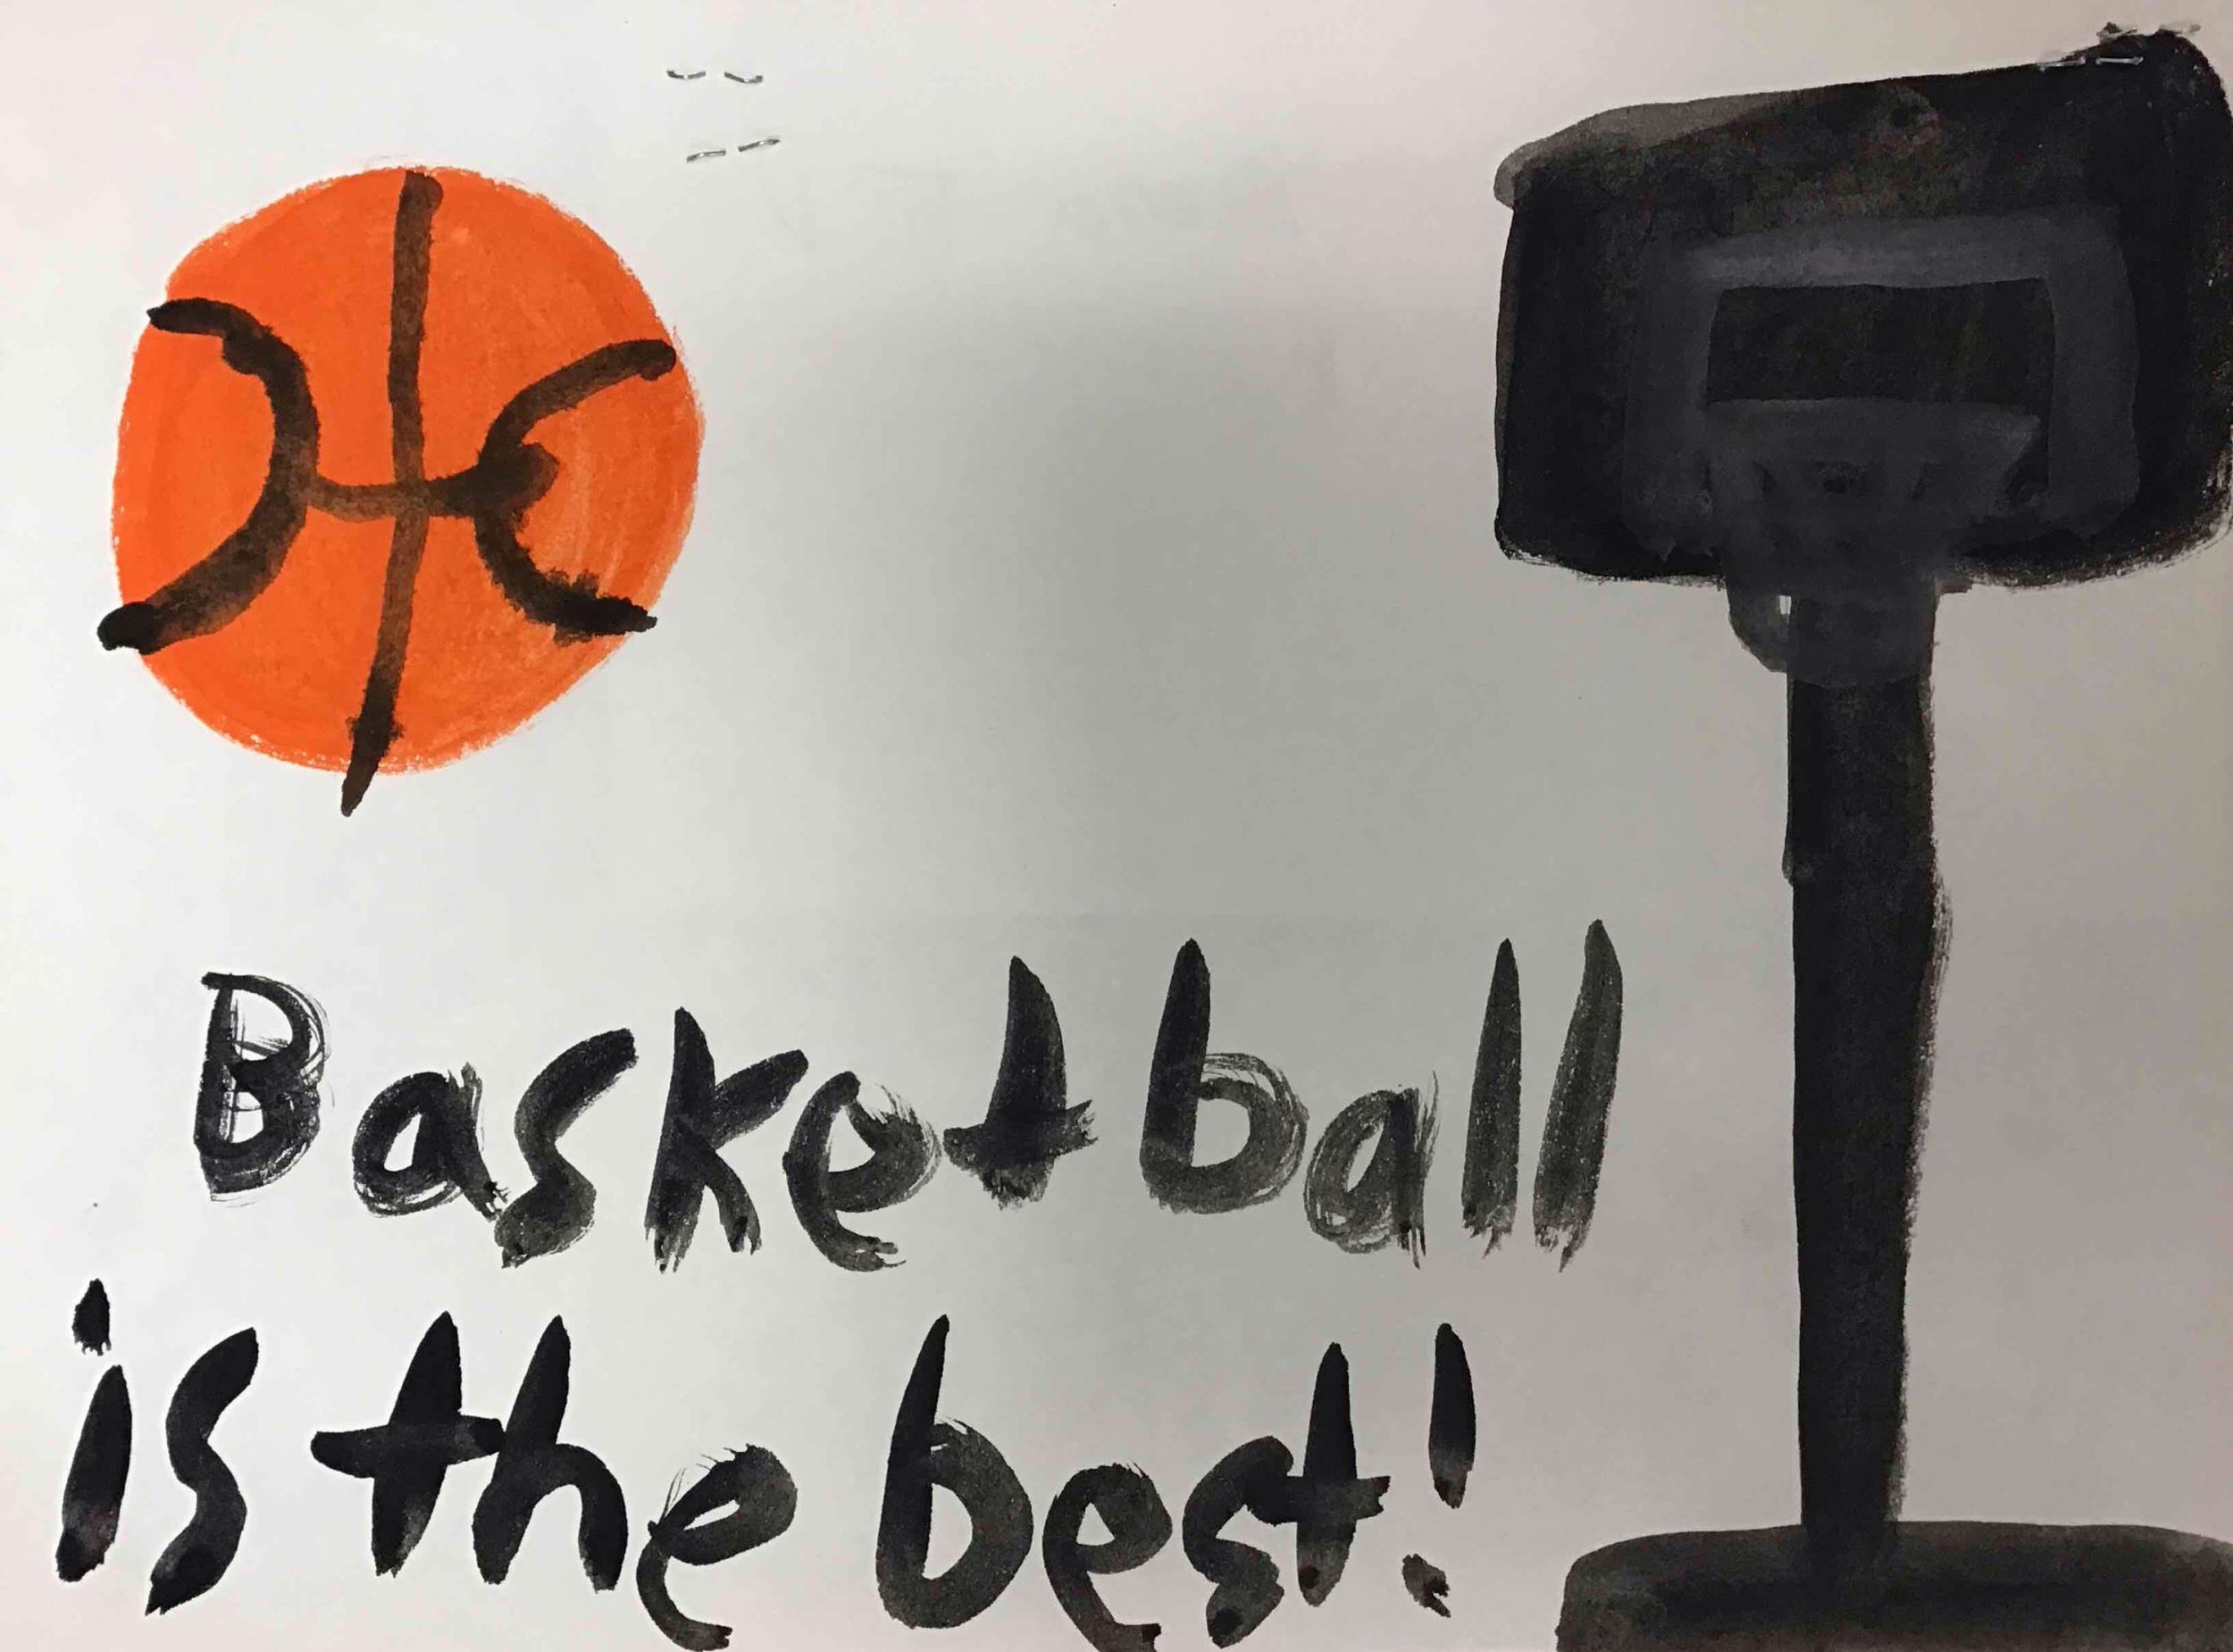 Basketball
is the best!